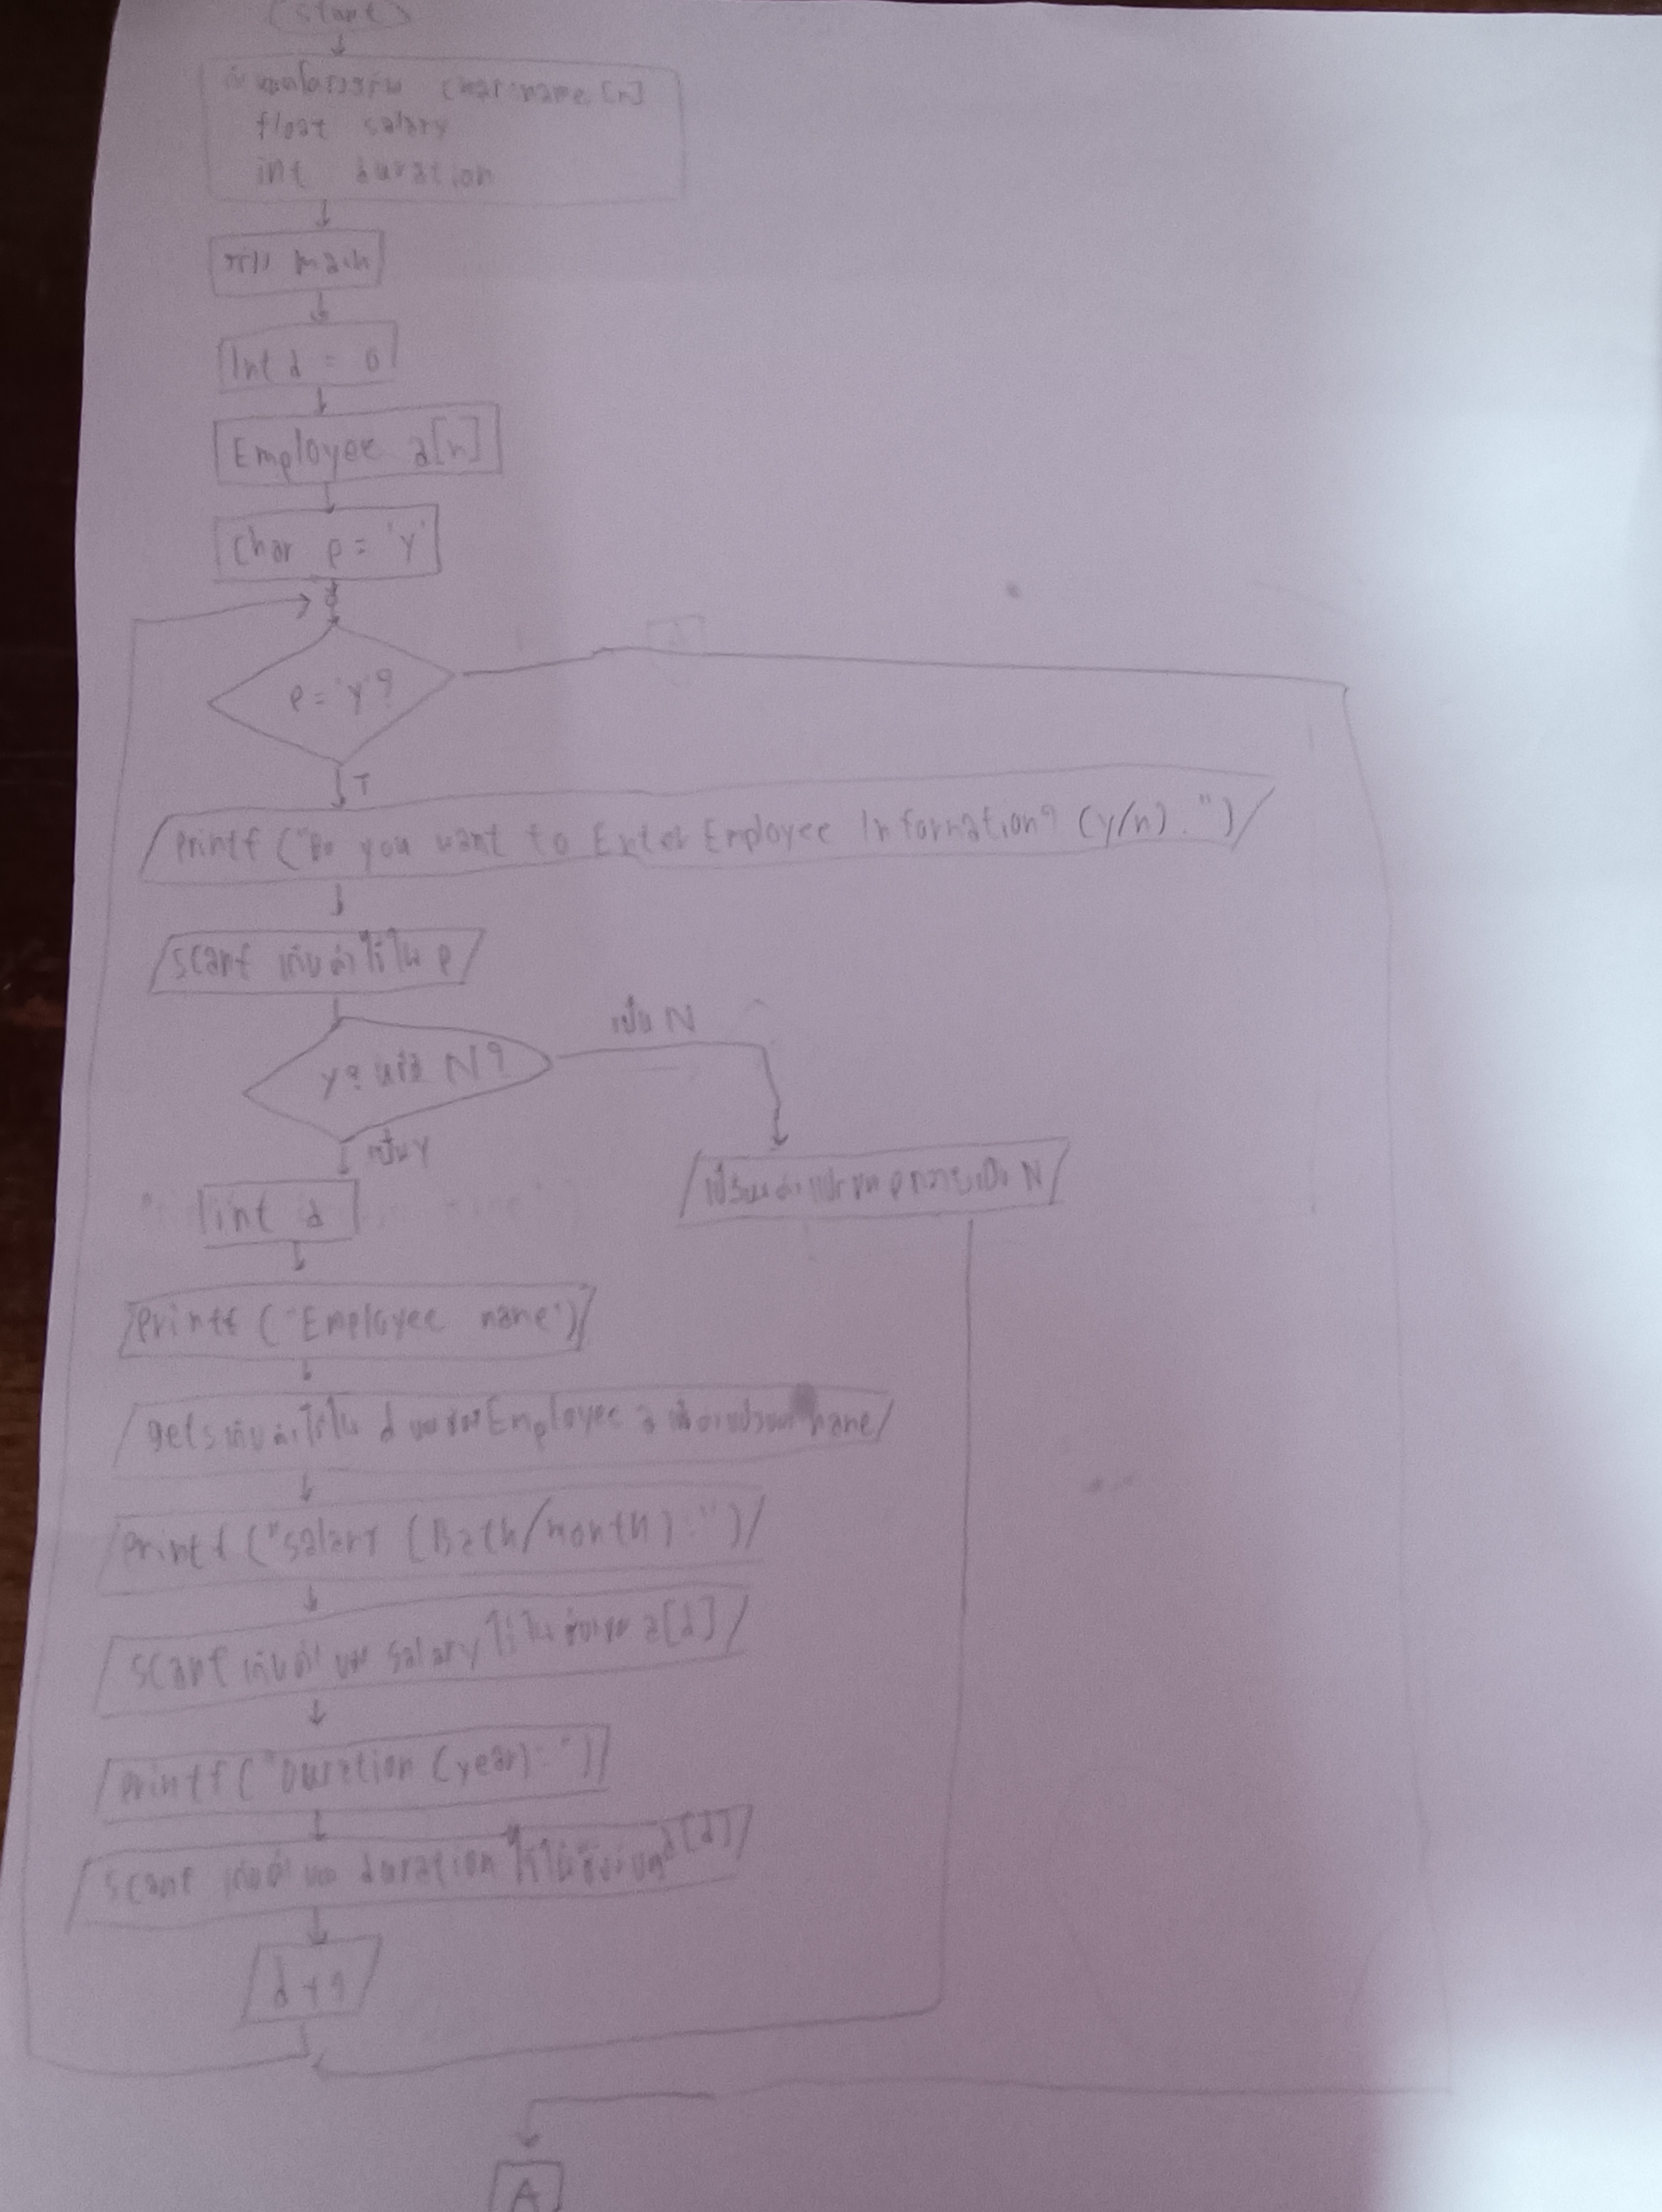 (start)
char name [n]
float salary
int duration
main
Int d = 0
Employee a[n]
Char P = 'Y'
P = 'Y'?
T
Printf ("Do you want to Enter Employee Information? (y/n) : ")
scanf เก็บค่าไว้ใน P
Y? หรือ N?
เป็น N
เป็น Y
int d
เปลี่ยนค่า P กลายเป็น N
Printf ("Employee name")
gets เก็บค่าไว้ใน d ของ Employee a name
Printf ("salary (Bath/month) : ")
scanf เก็บค่า salary ไว้ใน a[d]
Printf ("Duration (year) : ")
scanf เก็บค่า duration ไว้ใน a[d]
d+1
A